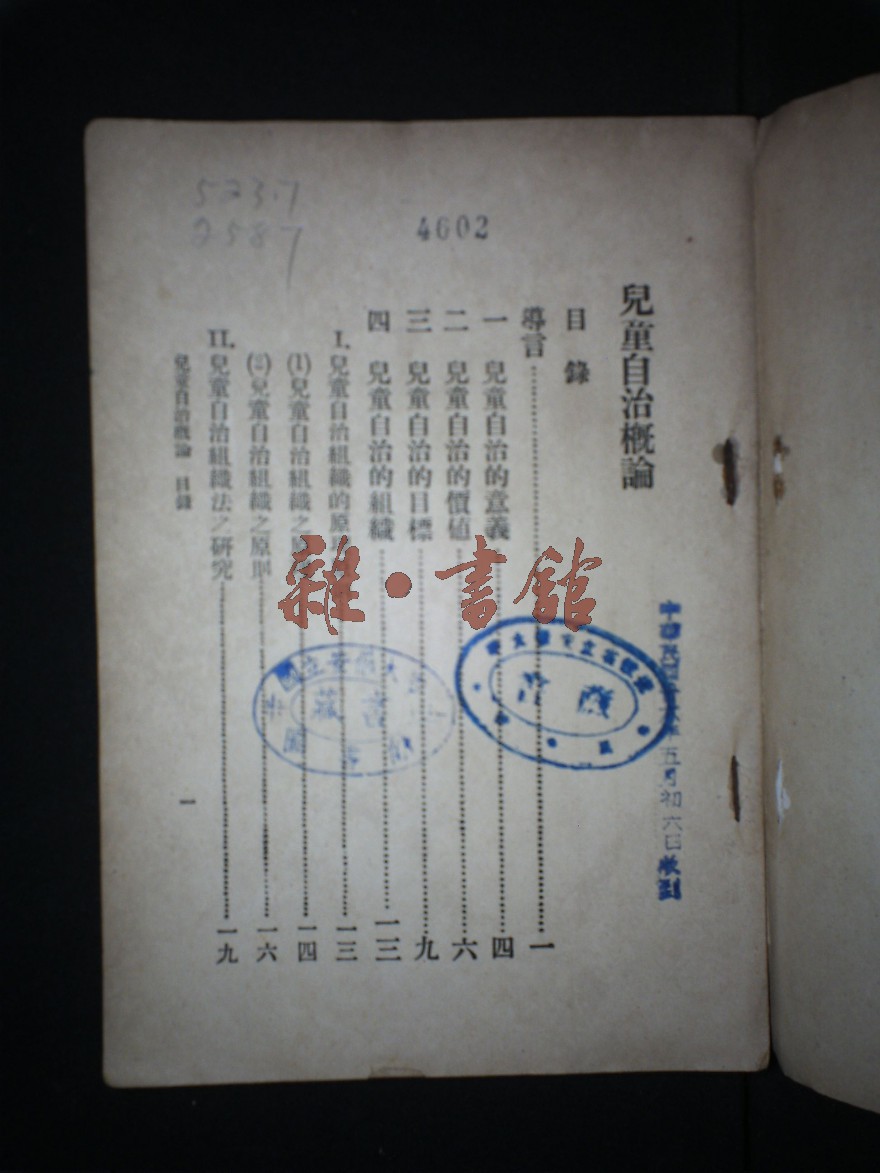 523.7
2587
4602
兒童自治概論
目錄
導言……一
一 兒童自治的意義……四
二 兒童自治的價値……六
三 兒童自治的目標……九
四 兒童自治的組織……一三
I. 兒童自治組織的原……一三
(1) 兒童自治組織之……一四
(2) 兒童自治組織之原則……一六
II. 兒童自治組織法之研究……一九
兒童自治概論 目錄
一
雜·書館
藏書
五月初六日收到